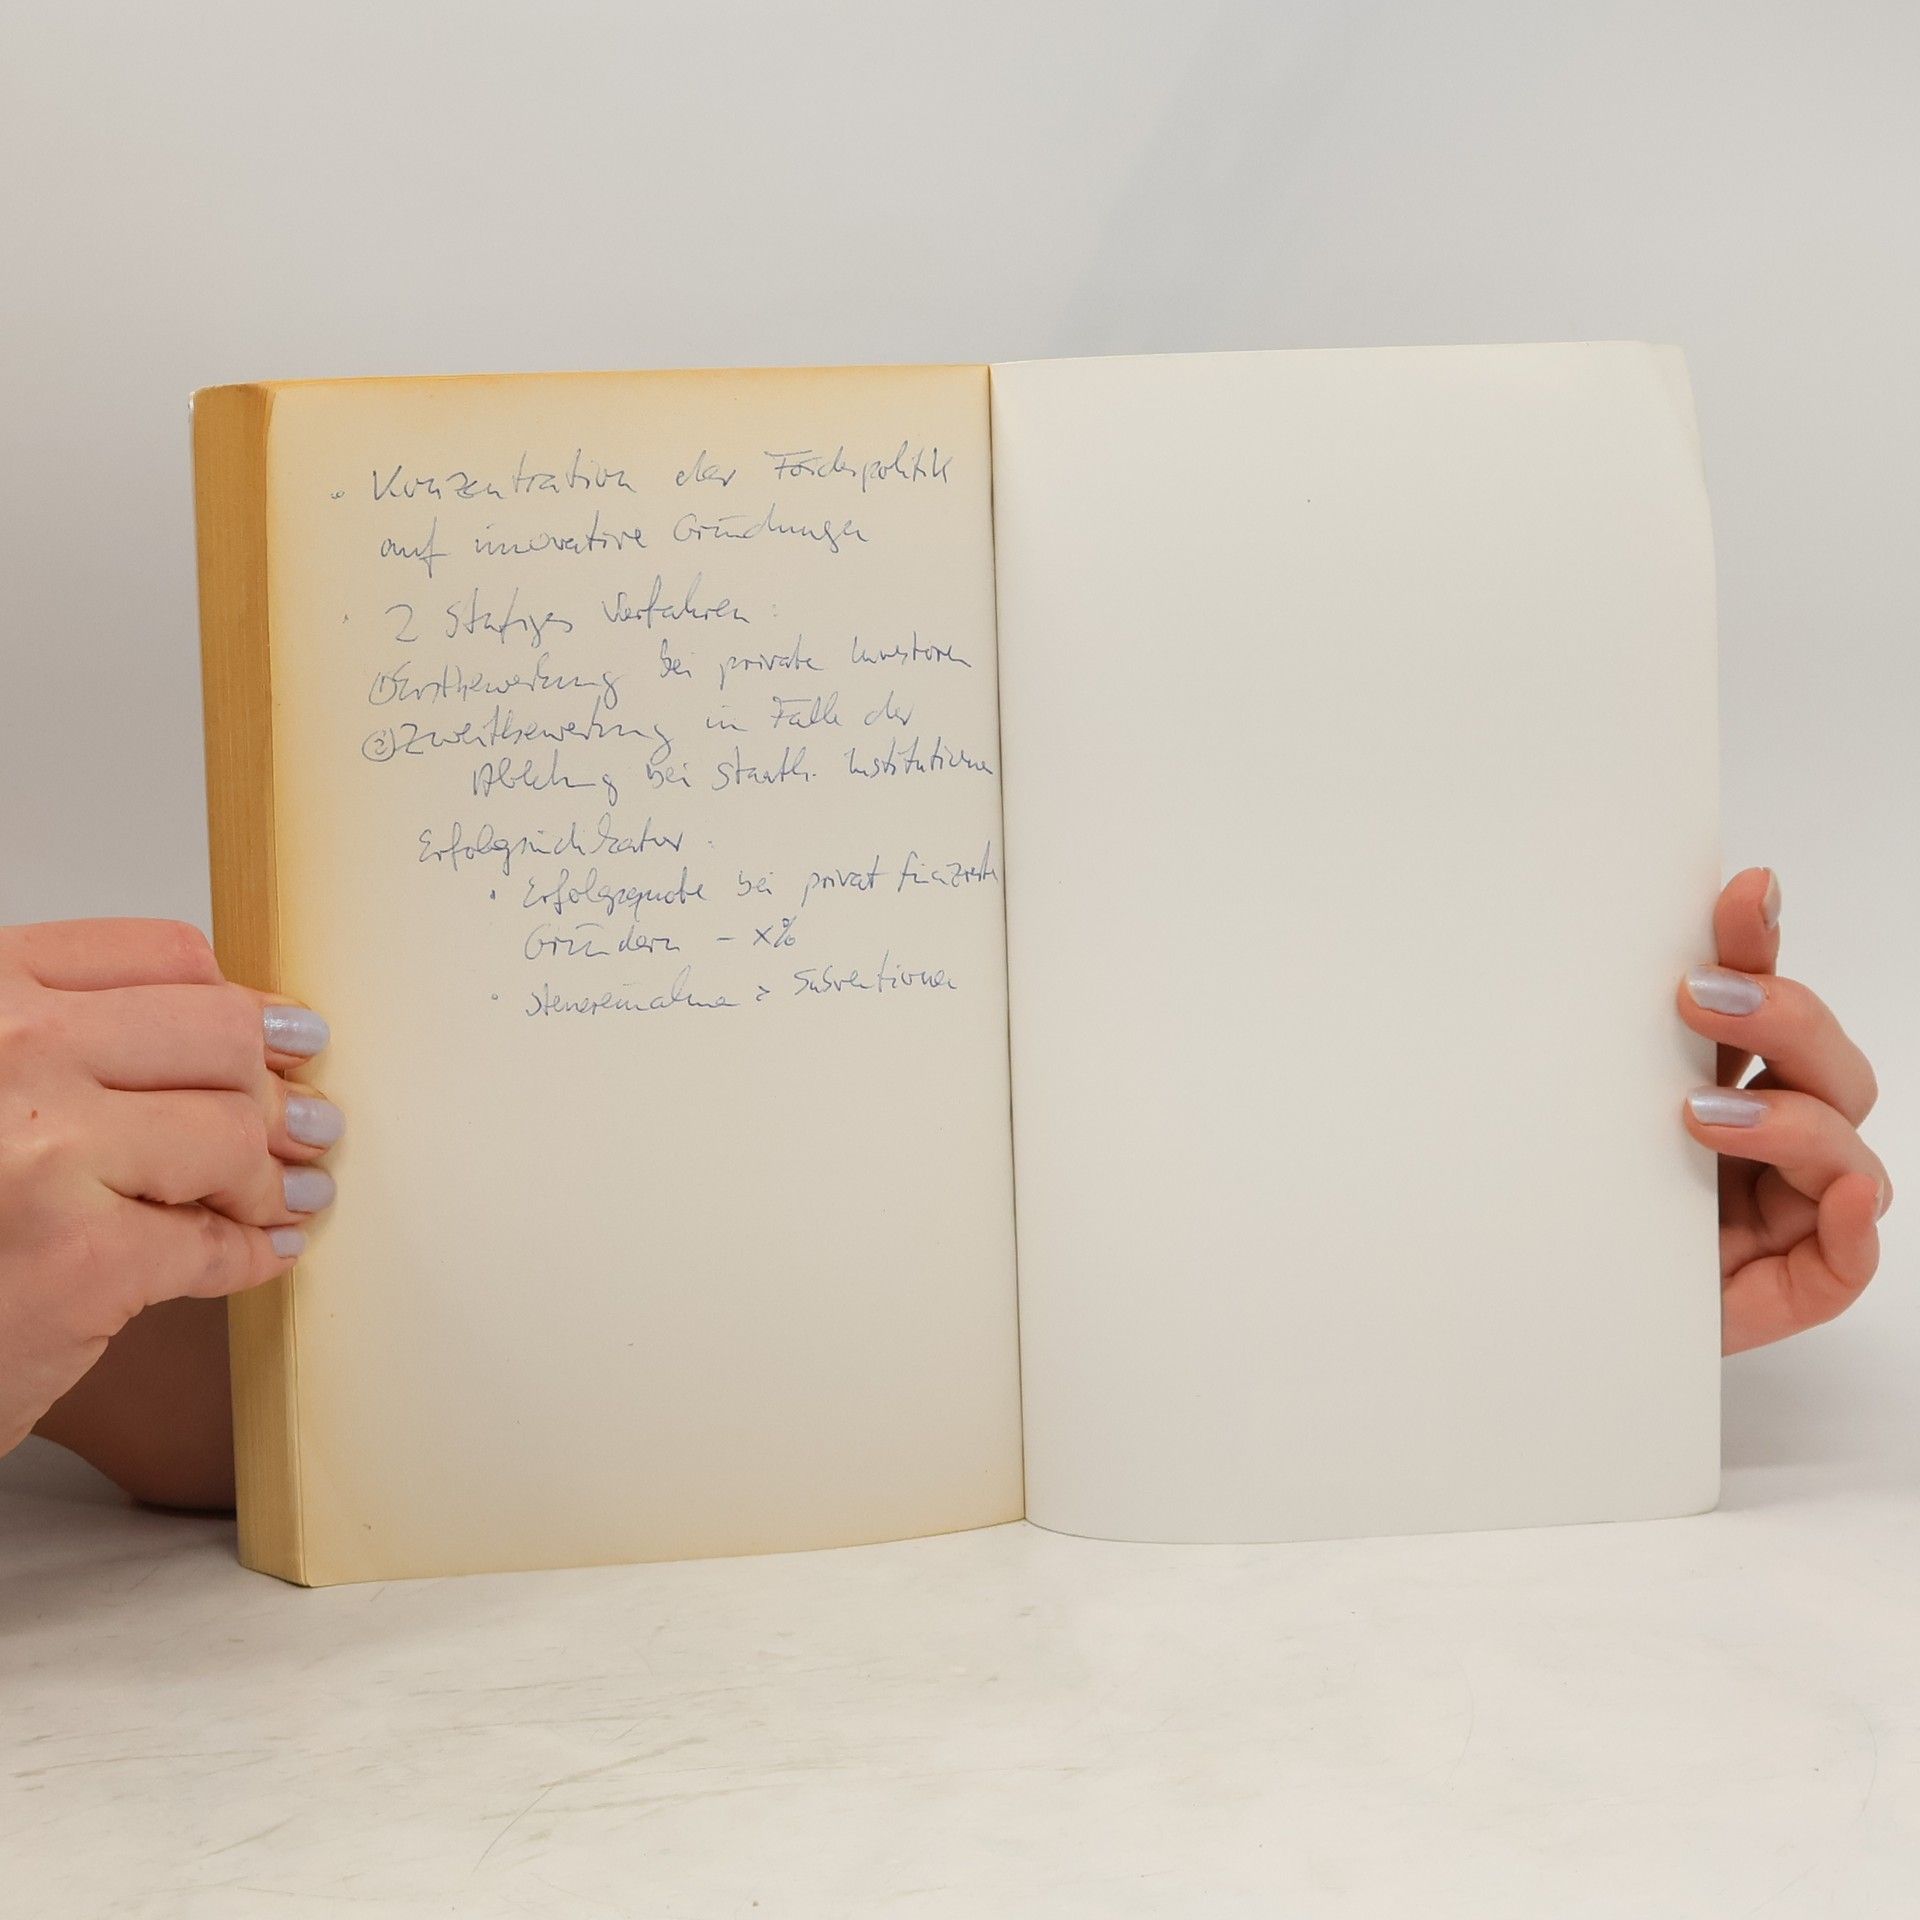 • Konzentration der Förderpolitik
auf innovative Gründungen
• 2 Stufiges Verfahren:
① Erstbewerbung bei private Investoren
② Zweitbewerbung im Falle der
Ablehnung bei staatl. Institutionen
Erfolgsindikator:
• Erfolgsquote bei privat finanzierte
Gründern - x%
• Steuereinnahmen > Subventionen